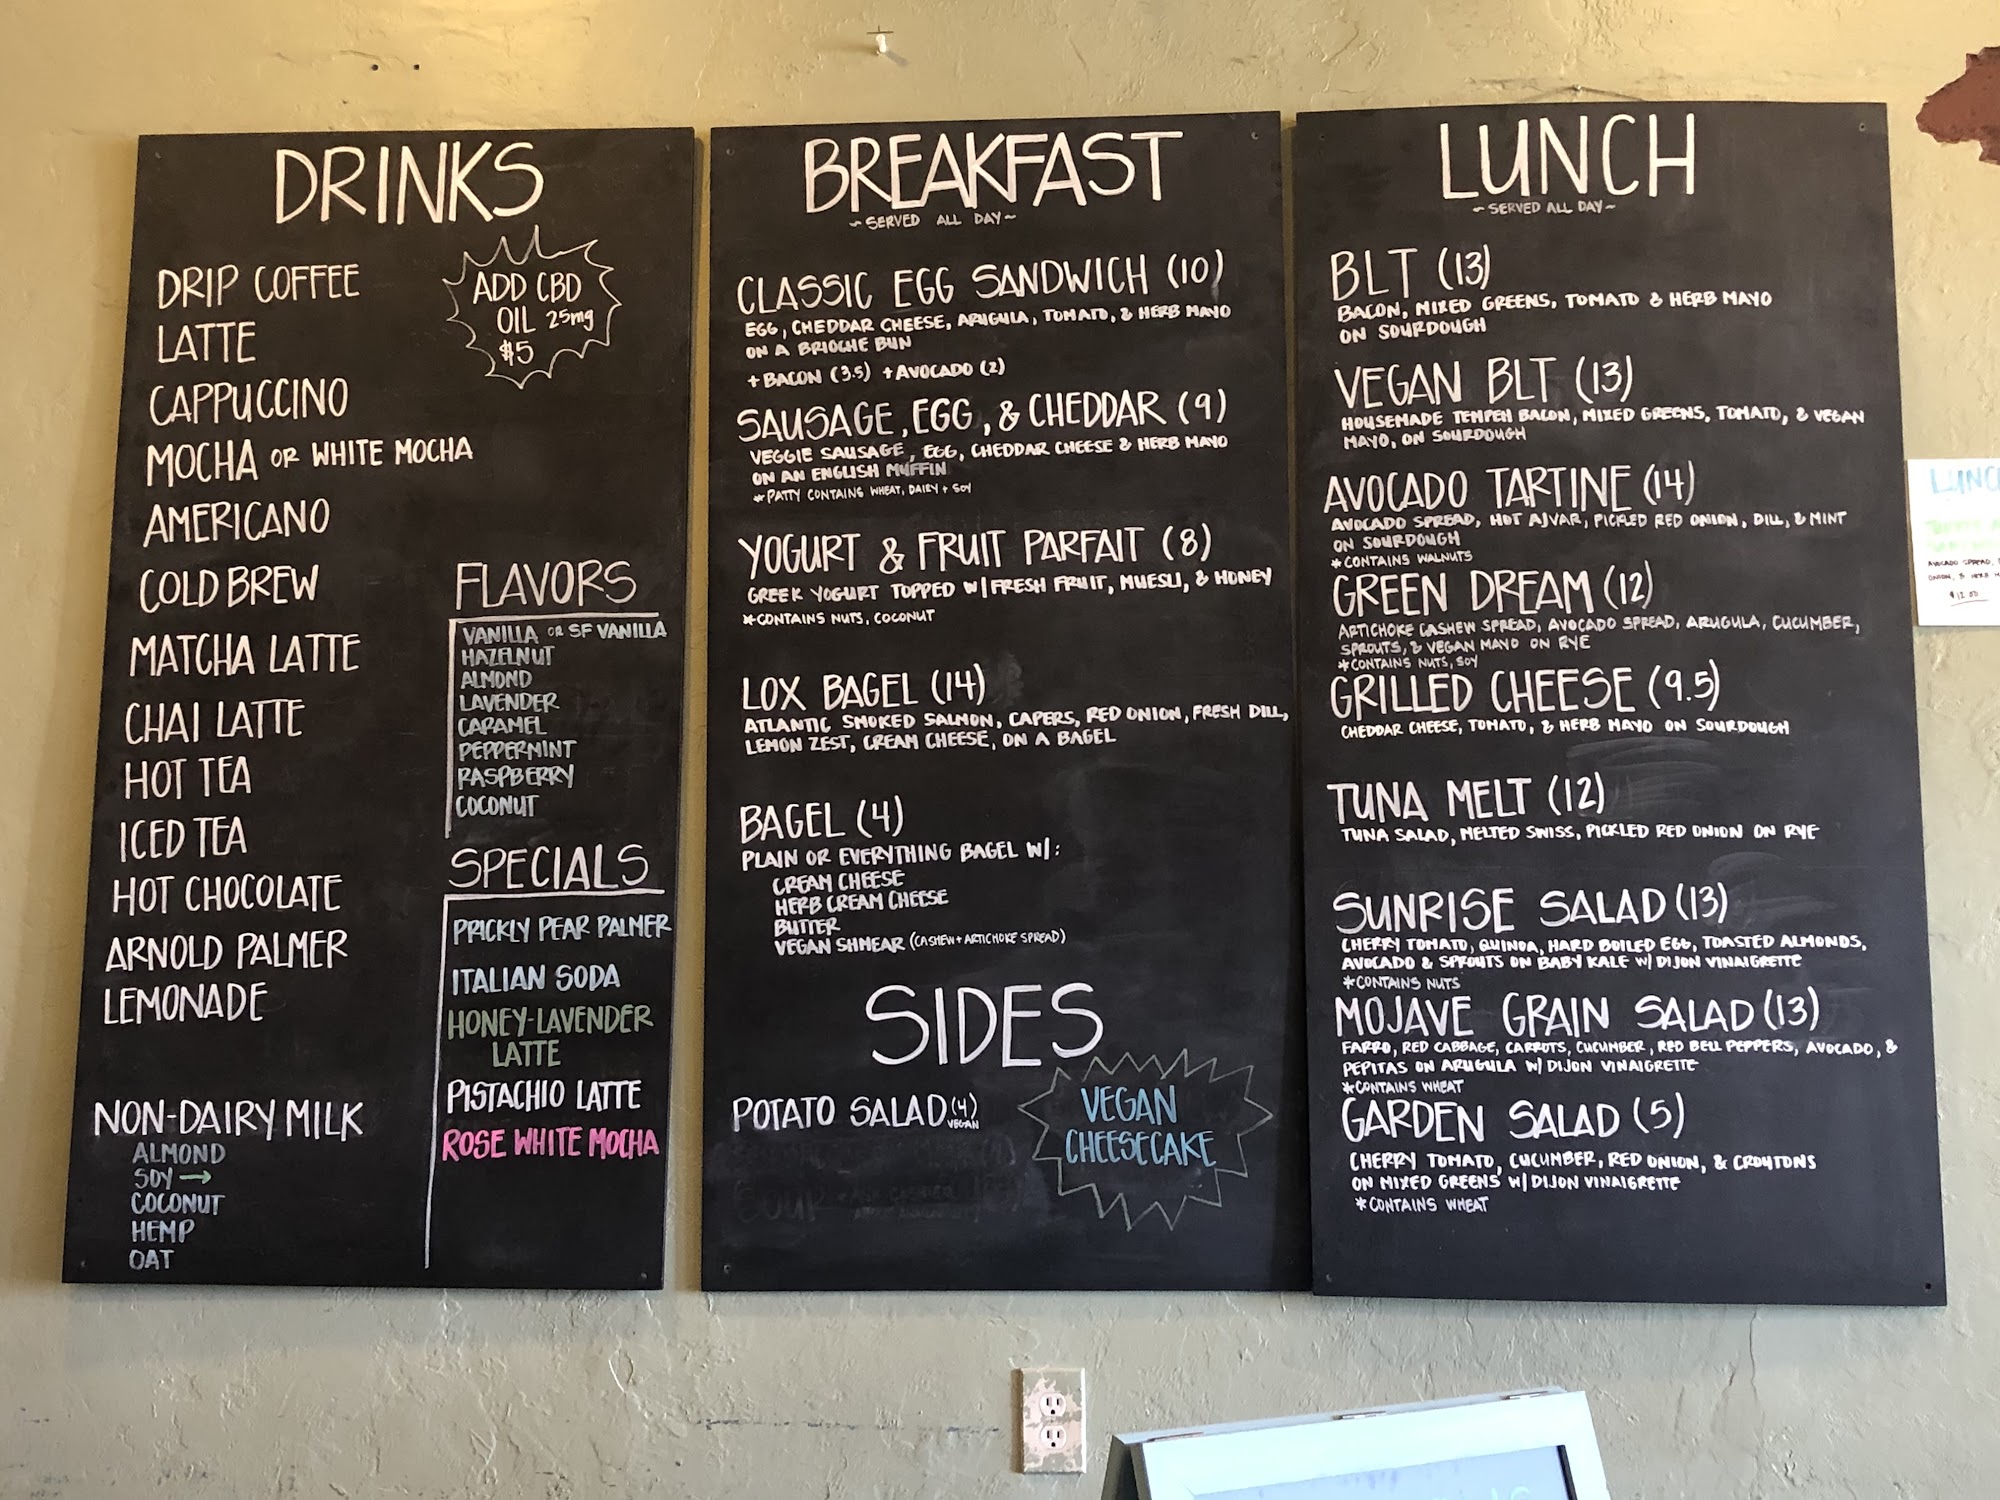 DRINKS
DRIP COFFEE
LATTE
CAPPUCCINO
MOCHA OR WHITE MOCHA
AMERICANO
COLD BREW
MATCHA LATTE
CHAI LATTE
HOT TEA
ICED TEA
HOT CHOCOLATE
ARNOLD PALMER
LEMONADE
NON-DAIRY MILK
ALMOND
SOY →
COCONUT
HEMP
OAT
ADD CBD
OIL 25mg
$5
FLAVORS
VANILLA OR SF VANILLA
HAZELNUT
ALMOND
LAVENDER
CARAMEL
PEPPERMINT
RASPBERRY
COCONUT
SPECIALS
PRICKLY PEAR PALMER
ITALIAN SODA
HONEY-LAVENDER
LATTE
PISTACHIO LATTE
ROSE WHITE MOCHA
BREAKFAST
~SERVED ALL DAY~
CLASSIC EGG SANDWICH (10)
EGG, CHEDDAR CHEESE, ARUGULA, TOMATO, & HERB MAYO
ON A BRIOCHE BUN
+ BACON (3.5) + AVOCADO (2)
SAUSAGE, EGG, & CHEDDAR (9)
VEGGIE SAUSAGE, EGG, CHEDDAR CHEESE & HERB MAYO
ON AN ENGLISH MUFFIN
*PATTY CONTAINS WHEAT, DAIRY + SOY
YOGURT & FRUIT PARFAIT (8)
GREEK YOGURT TOPPED W/ FRESH FRUIT, MUESLI, & HONEY
*CONTAINS NUTS, COCONUT
LOX BAGEL (14)
ATLANTIC SMOKED SALMON, CAPERS, RED ONION, FRESH DILL,
LEMON ZEST, CREAM CHEESE, ON A BAGEL
BAGEL (4)
PLAIN OR EVERYTHING BAGEL W/:
CREAM CHEESE
HERB CREAM CHEESE
BUTTER
VEGAN SHMEAR (CASHEW + ARTICHOKE SPREAD)
SIDES
POTATO SALAD (4) VEGAN
VEGAN
CHEESECAKE
LUNCH
~SERVED ALL DAY~
BLT (13)
BACON, MIXED GREENS, TOMATO & HERB MAYO
ON SOURDOUGH
VEGAN BLT (13)
HOUSEMADE TEMPEH BACON, MIXED GREENS, TOMATO, & VEGAN
MAYO, ON SOURDOUGH
AVOCADO TARTINE (14)
AVOCADO SPREAD, HOT AJVAR, PICKLED RED ONION, DILL, & MINT
ON SOURDOUGH
*CONTAINS WALNUTS
GREEN DREAM (12)
ARTICHOKE CASHEW SPREAD, AVOCADO SPREAD, ARUGULA, CUCUMBER,
SPROUTS, & VEGAN MAYO ON RYE
*CONTAINS NUTS, SOY
GRILLED CHEESE (9.5)
CHEDDAR CHEESE, TOMATO, & HERB MAYO ON SOURDOUGH
TUNA MELT (12)
TUNA SALAD, MELTED SWISS, PICKLED RED ONION ON RYE
SUNRISE SALAD (13)
CHERRY TOMATO, QUINOA, HARD BOILED EGG, TOASTED ALMONDS,
AVOCADO & SPROUTS ON BABY KALE W/ DIJON VINAIGRETTE
*CONTAINS NUTS
MOJAVE GRAIN SALAD (13)
FARRO, RED CABBAGE, CARROTS, CUCUMBER, RED BELL PEPPERS, AVOCADO, &
PEPITAS ON ARUGULA W/ DIJON VINAIGRETTE
*CONTAINS WHEAT
GARDEN SALAD (5)
CHERRY TOMATO, CUCUMBER, RED ONION, & CROUTONS
ON MIXED GREENS W/ DIJON VINAIGRETTE
*CONTAINS WHEAT
LUNC
AVOCADO SPREAD,
ONION, & HERB
$12.00